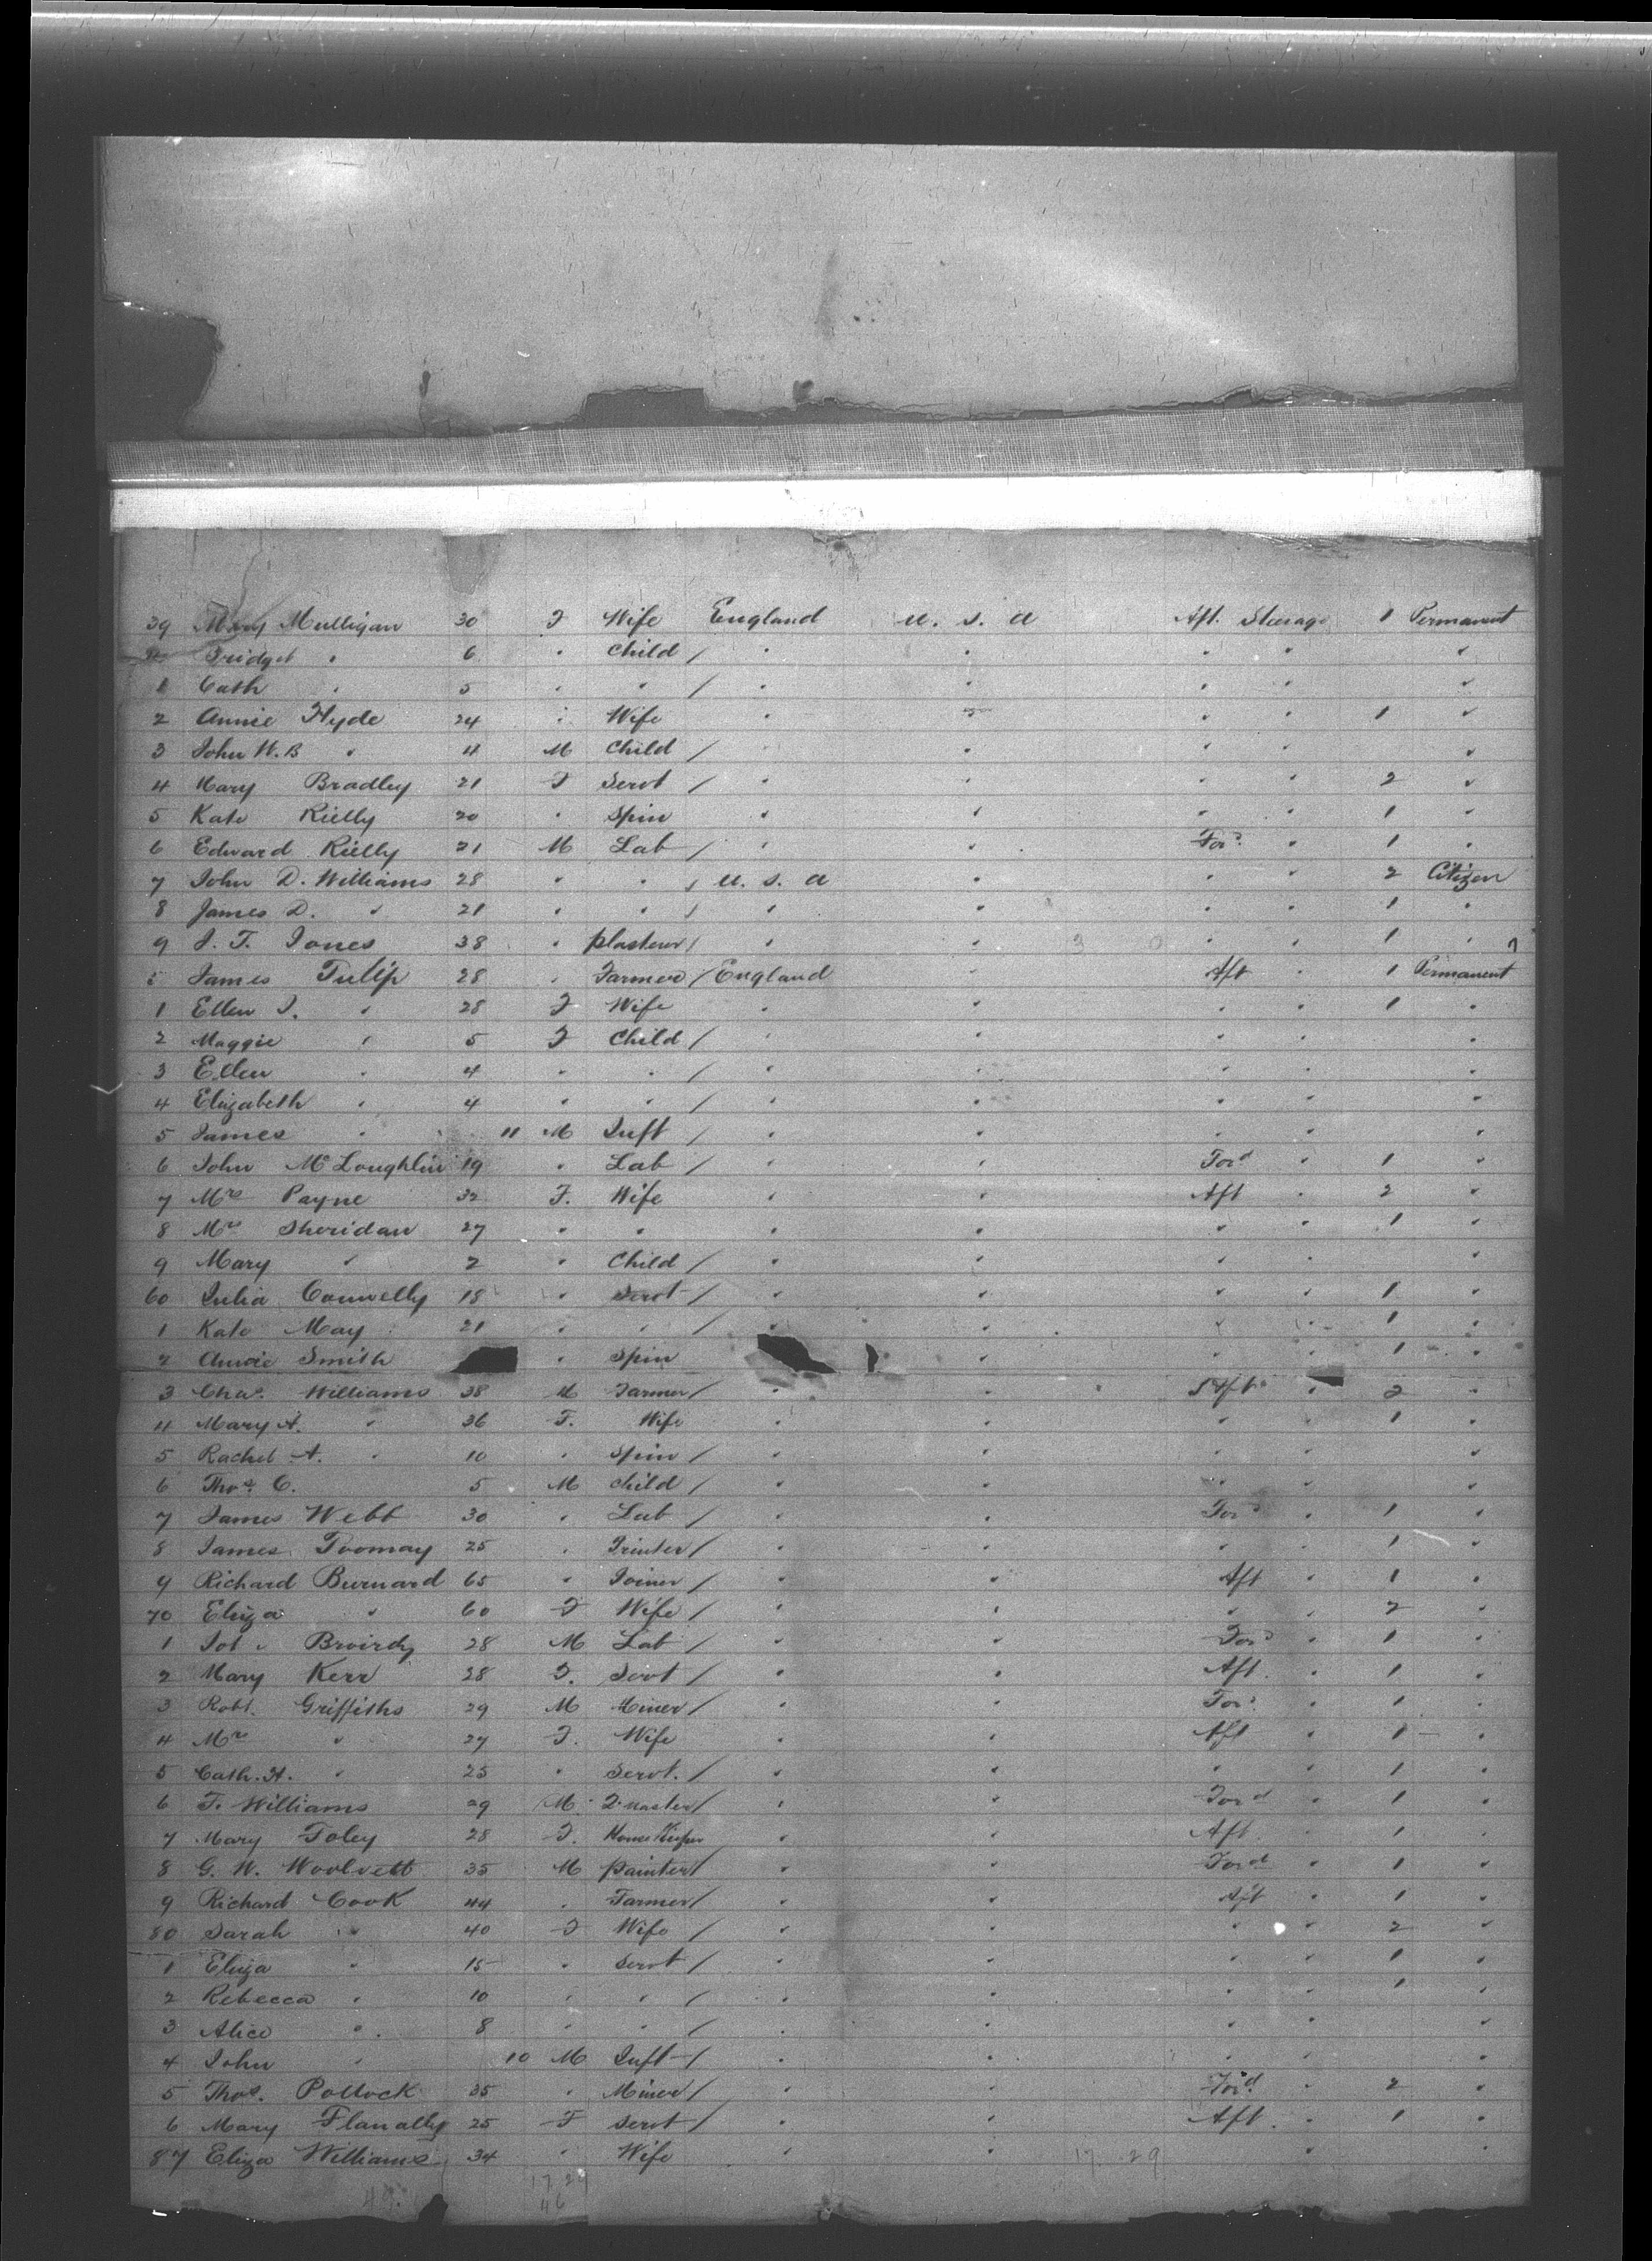 39 Mary Mulligan 30 F Wife England U. S. A Aft. Steerage 1 Permanent
Bridget " 6 " Child / " " " " "
1 Cath " 5 " " / " " " " "
2 Annie Hyde 24 " Wife " " " " 1 "
3 John W. B " 4 M Child / " " " " "
4 Mary Bradley 21 F Servt / " " " " 2 "
5 Kate Rielly 20 " Spin " " " " 1 "
6 Edward Rielly 21 M Lab / " " Ford " 1 "
7 John D. Williams 28 " " / U. S. A " " " 2 Citizen
8 James D. " 21 " " / " " " " 1 "
9 J. T. Jones 38 " plasterer / " " " " 1 "
James Tulip 28 " Farmer / England " Aft " 1 Permanent
1 Ellen J. " 28 F Wife " " " " 1 "
2 Maggie " 5 F Child / " " " " "
3 Ellen " 4 " " / " " " " "
4 Elizabeth " 4 " " / " " " " "
5 James " 11 M Inft / " " " " "
6 John McLoughlin 19 " Lab / " " Ford " 1 "
7 Mrs Payne 32 F. Wife " " Aft " 2 "
8 Mrs Sheridan 27 " " " " " " 1 "
9 Mary " 2 " Child / " " " " "
60 Julia Connelly 18 " Servt / " " " " 1 "
1 Kate May 21 " " / " " " " 1 "
2 Annie Smith " Spin " " " 1 "
3 Chas. Williams 38 M Farmer / " " Aft " 2 "
4 Mary A. " 36 F. Wife " " " " 1 "
5 Rachel A. " 10 " Spin / " " " " "
6 Thos. C. 5 M Child / " " " " "
7 James Webb 30 " Lab / " " Ford " 1 "
8 James Toomay 25 " Printer / " " " " 1 "
9 Richard Burnard 65 " Joiner / " " Aft " 1 "
70 Eliza " 60 F Wife / " " " " 2 "
1 28 M Lab / " " Ford " 1 "
2 Mary Kerr 28 F. Servt / " " Aft. " 1 "
3 Robt. Griffiths 29 M Miner / " " Ford " 1 "
4 Mrs " 27 F. Wife " " Aft " 1 "
5 Cath. H. " 25 " Servt. / " " " " 1 "
6 T. Williams 29 M / " " Ford " 1 "
7 Mary Foley 28 F. House Keeper " " Aft. " 1 "
8 G. W. Woolvett 35 M painter / " " Ford " 1 "
9 Richard Cook 44 " Farmer / " " Aft " 1 "
80 Sarah " 40 F Wife / " " " " 2 "
1 Eliza " 15 " Servt / " " " " 1 "
2 Rebecca " 10 " " / " " " " 1 "
3 Alice " 8 " " / " " " " "
4 John " 10 M Inft / " " " " "
5 Thos. Pollock 35 " Miner / " " Ford " 2 "
6 Mary Flanally 25 F Servt / " " Aft. " 1 "
87 Eliza Williams 34 " Wife " " " "
17 29
17 29
46